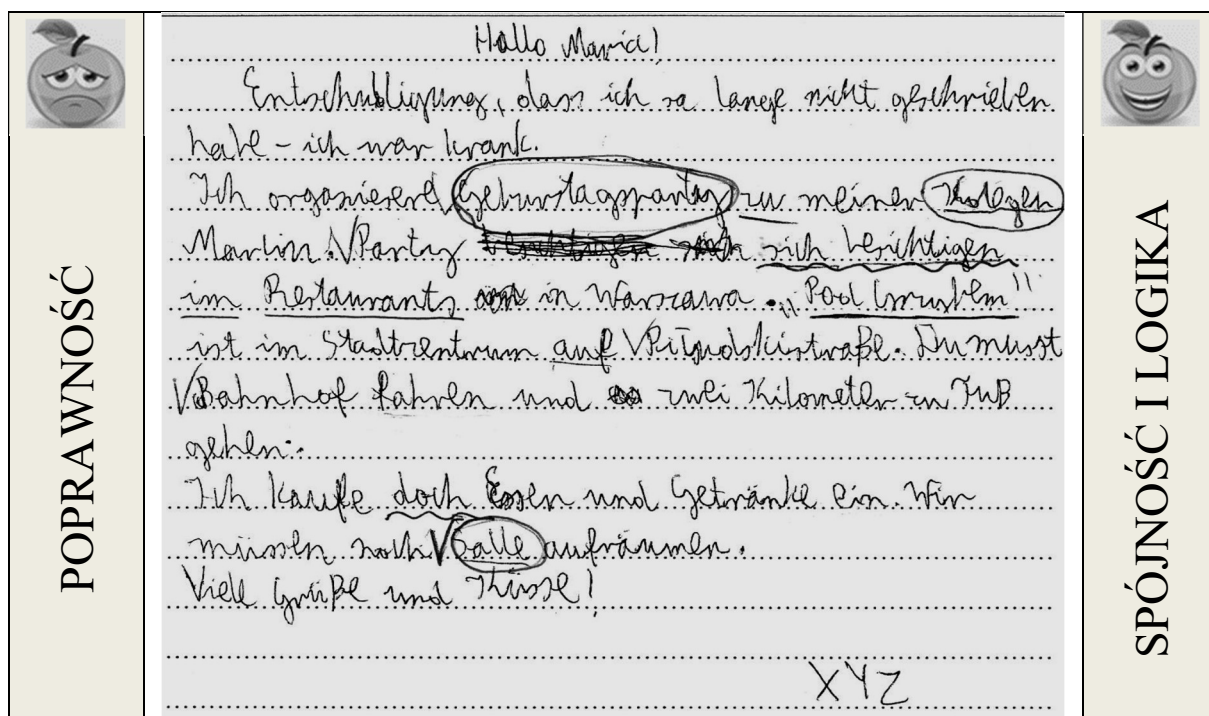 POPRAWNOŚĆ
Hallo Maria!
Entschubligung, dass ich so lange nicht geschrieben
habe - ich war krank.
Ich organisiere Geburstagsparty zu meiner Kolegen
Marlin. √ Party sich besichtigen
im Restaurants in Warszawa. "Pod Gruszkem"
ist im Stadtzentrum auf √ Piłsudskistraße. Du musst
√ Bahnhof fahren und zwei Kilometer zu Fuß
gehen.
Ich kaufe doch Essen und Getränke ein. Wir
müssen noch √ Salle aufräumen.
Viele Grüße und Küsse!
XYZ
SPÓJNOŚĆ I LOGIKA